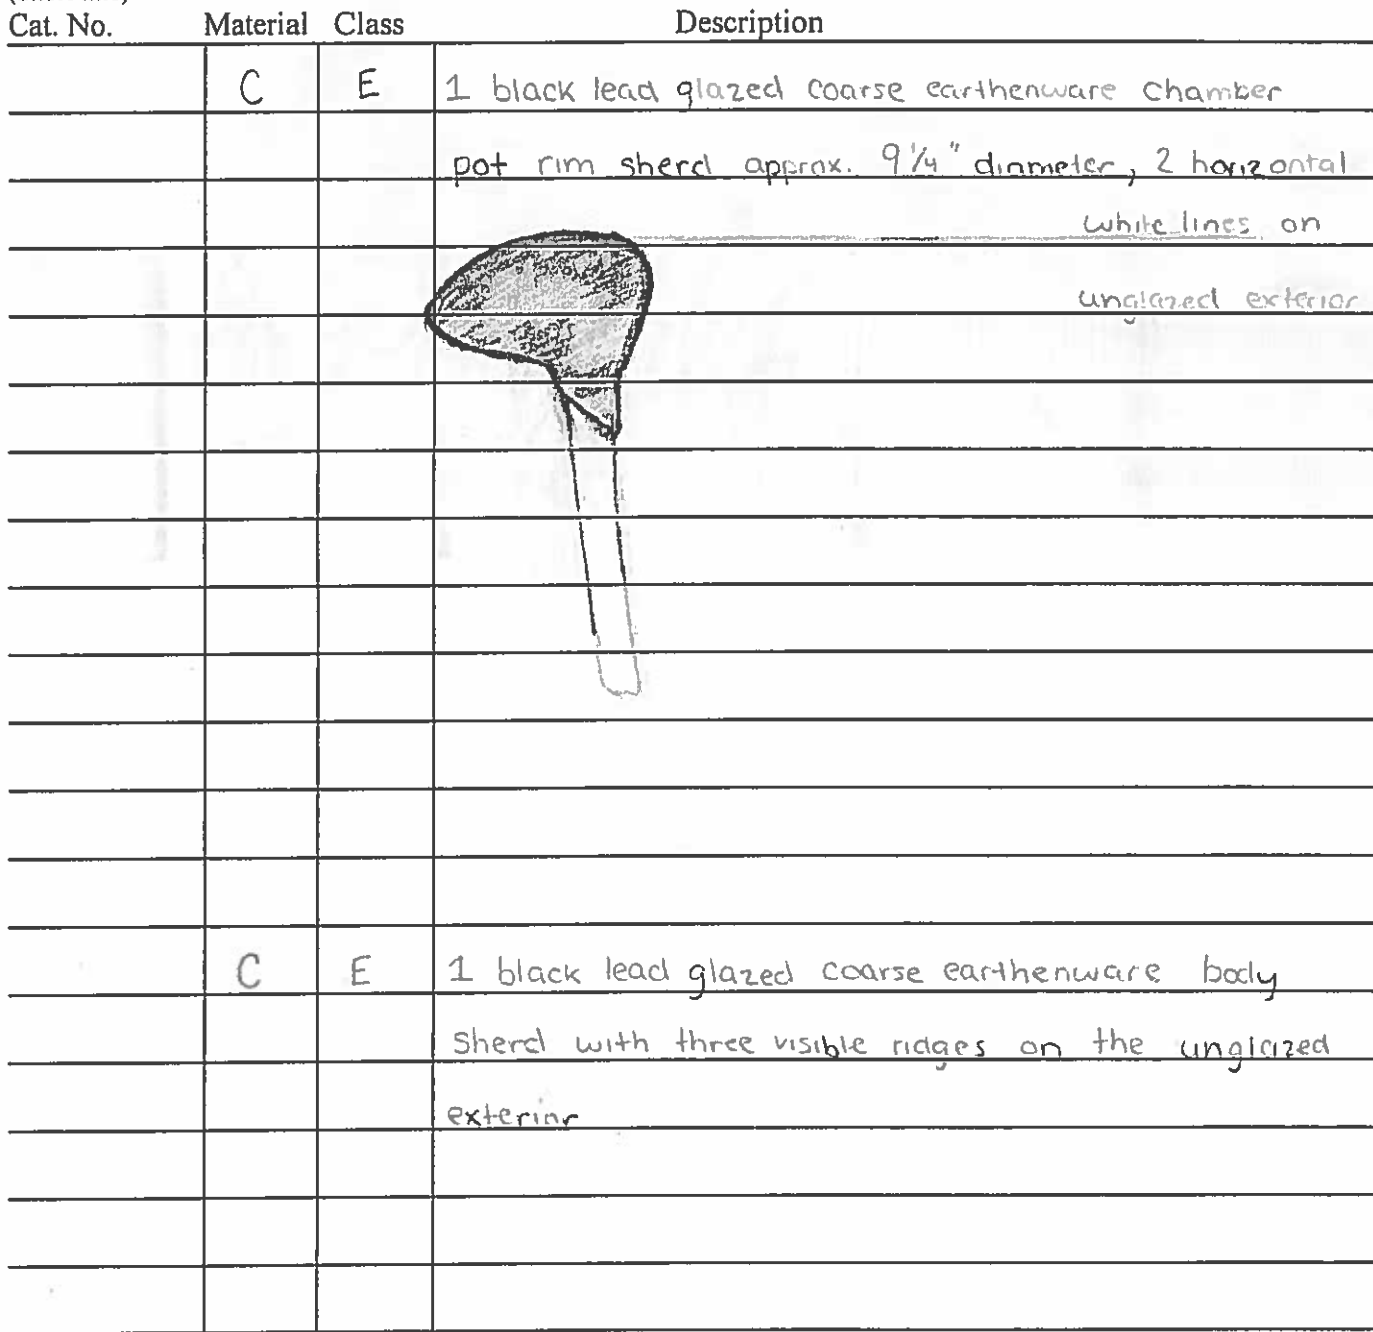 Cat. No. Material Class Description
C E 1 black lead glazed coarse earthenware chamber
pot rim sherd approx. 9 1/4" diameter, 2 horizontal
white lines on
unglazed exterior
C E 1 black lead glazed coarse earthenware body
sherd with three visible ridges on the unglazed
exterior